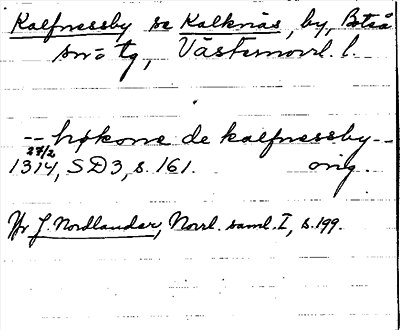 Kalfnessby se Kalknäs, by, Boteå
sn o tg, Västernorrl. l.
-- hokone de kalfnessby --
27/2
1314, SD3, s. 161. orig.
Jfr J. Nordlander, Norrl. saml. I, s. 199.